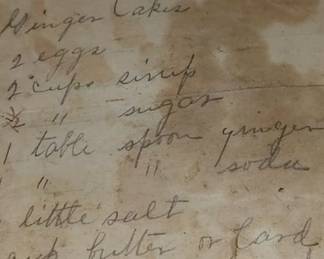 Ginger Cakes
2 eggs
2 cups sirup
½ " sugar
1 table spoon ginger
" " soda
little salt
cup butter or lard